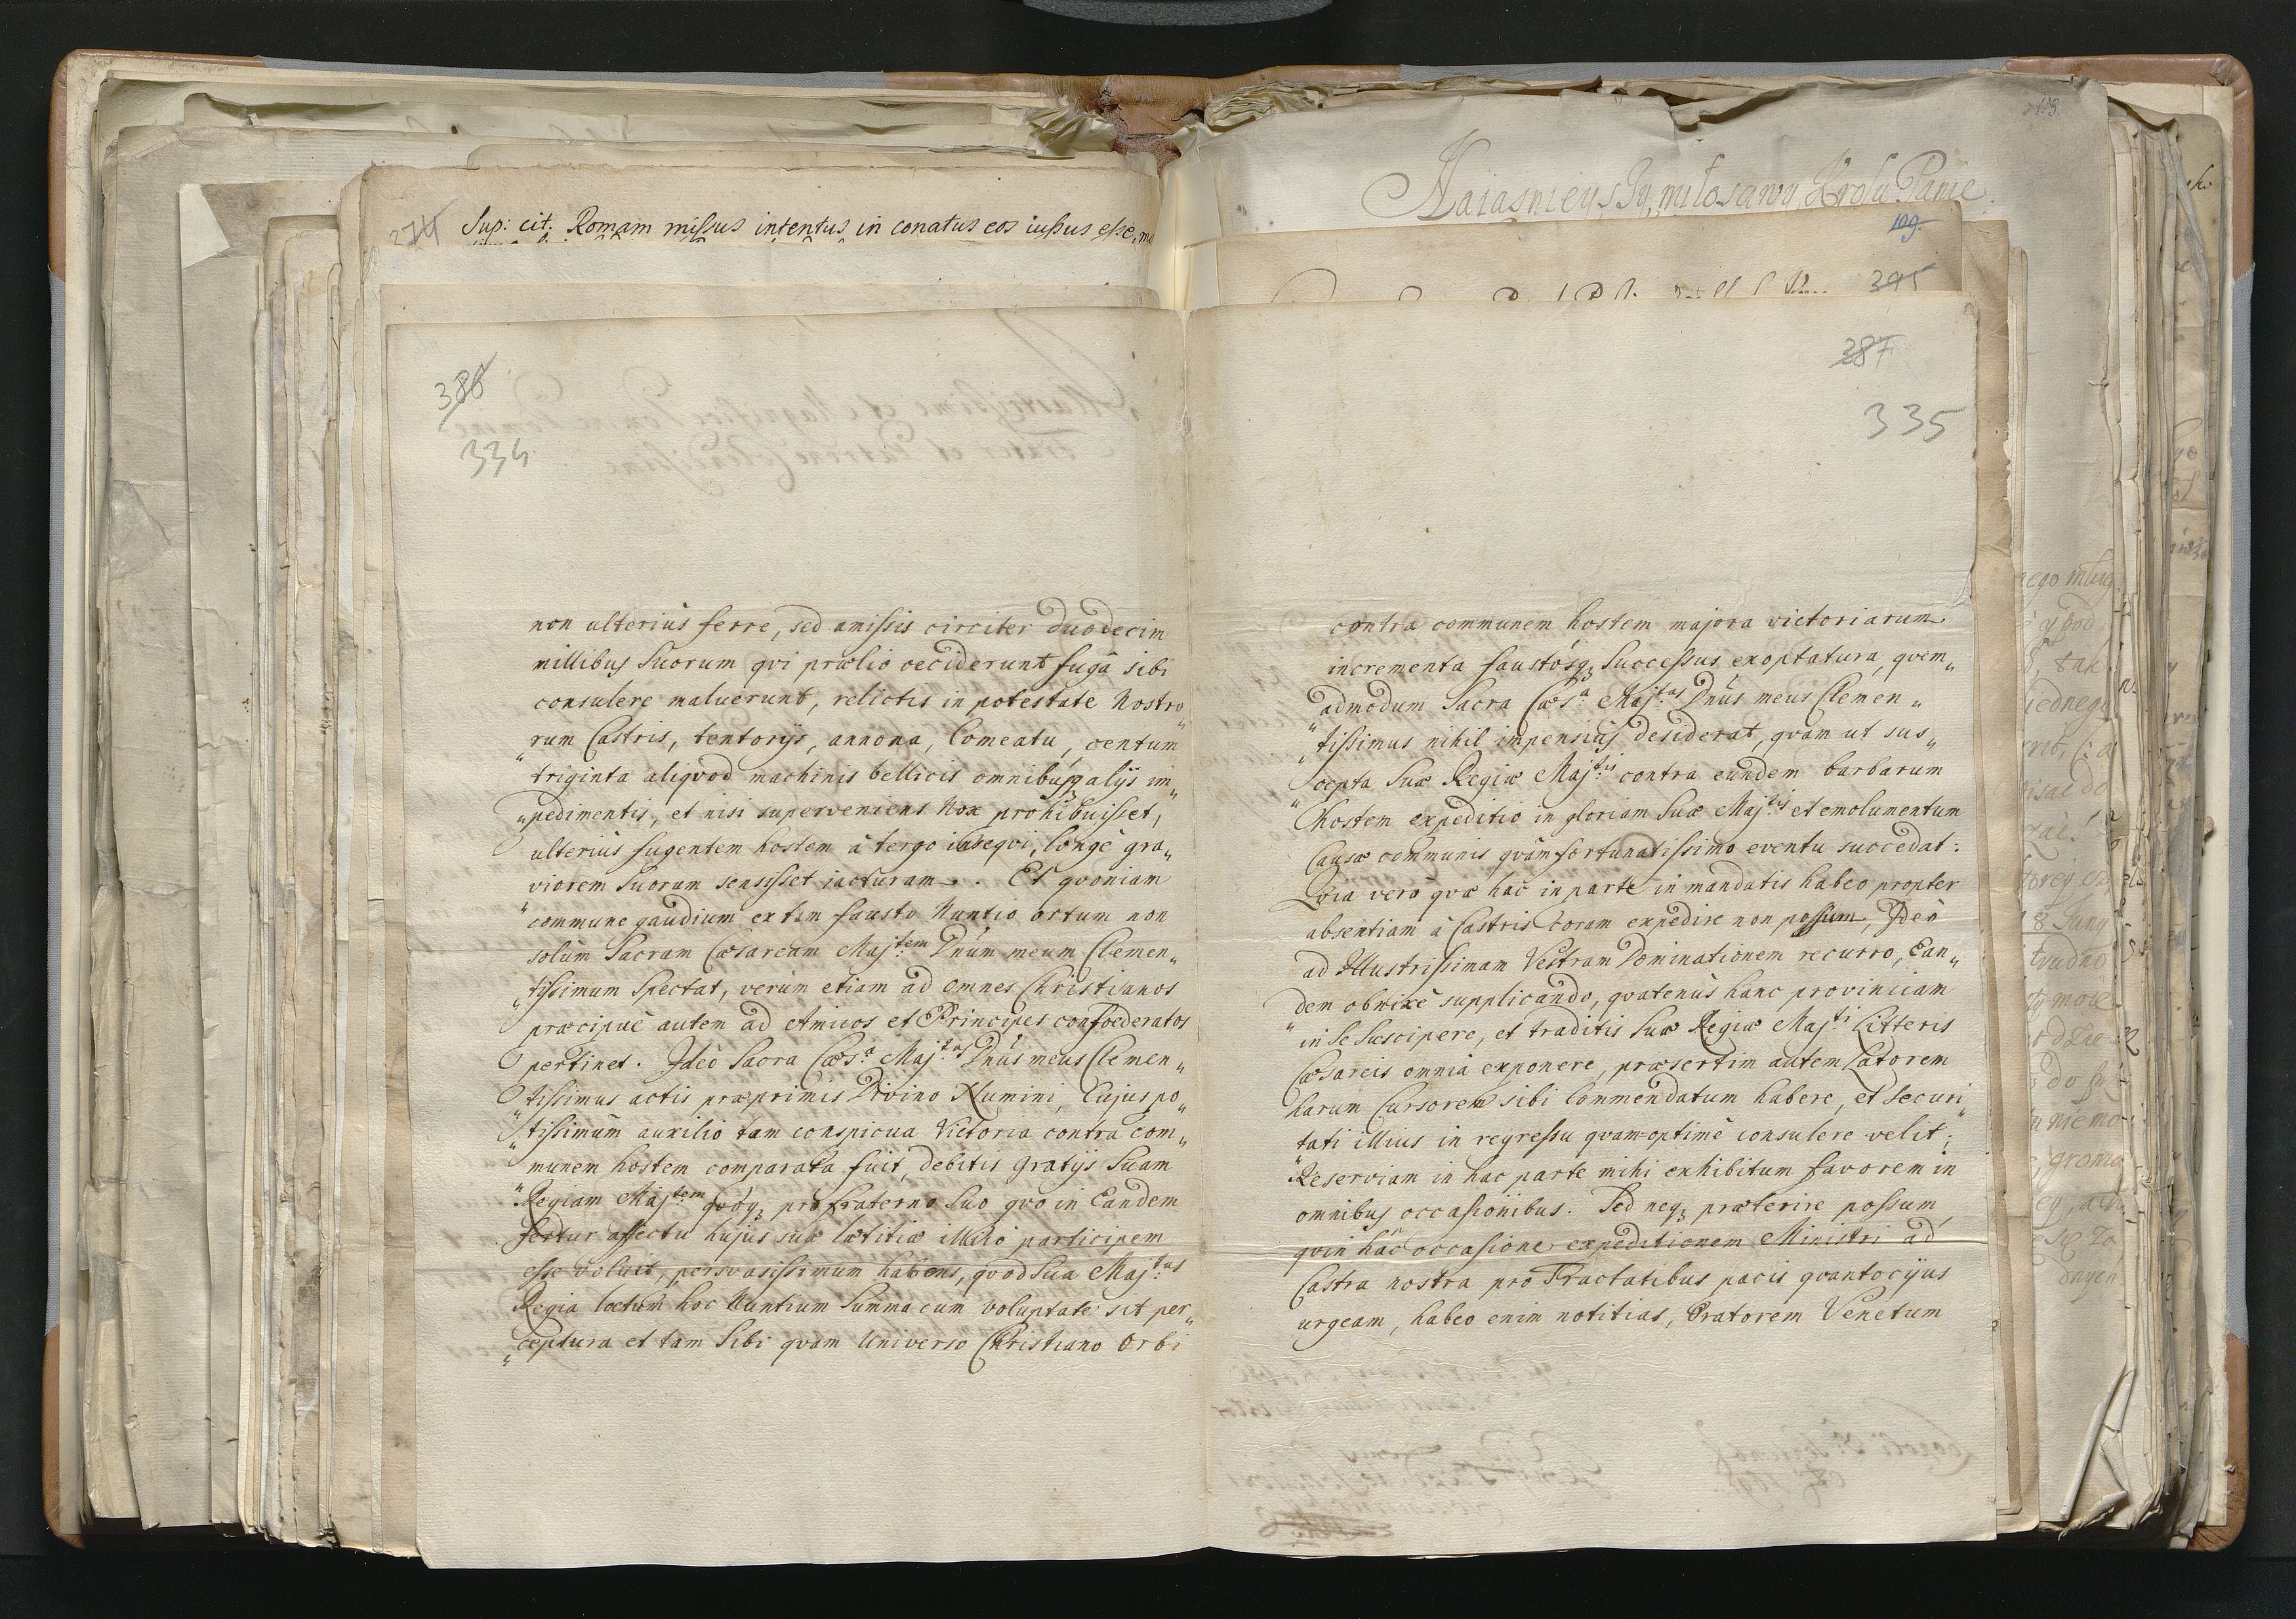 274 Sup: cit. Romam missus intentus in conatus eos iussus esse,
386
334
non ulteriùs ferre, sed amissis circiter duodecim
millibus Suorum qvi prælio ceciderunt fugâ sibi
consulere maluerunt, relictis in potestate Nostro„
„rum Castris, tentorijs, annona, Comeatu, centum
triginta aliqvod machinis bellicis omnibusq₃ alijs im„
„pedimentis, et nisi superveniens Nox prohibuisset,
ulteriùs fugentem hostem à tergo inseqvi, longè gra„
„viorem Suorum sensisset jacturam. Et qvoniam
commune gaudium ex tam fausto Nuntio ortum non
solùm Sacram Cæsaream Maj:tem Dnũm meum Clemen„
„tissimum Spectat, verùm etiam ad omnes Christianos
præcipuè autem ad Amicos et Principes confoederatos
pertinet. Ideò Sacra Cæs:a Maj:tas Dnũs meus Clemen„
„tissimus actis præprimis Divino Numini, Cujus po„
„tissimùm auxilio tam conspicua Victoria contra com„
„munem hostem comparata fuit, debitis Gratijs Suam
Regiam Maj:tem qvoq₃ pro fraterno Suo qvo in Eandem
fertur affectu hujus suæ lætitiæ illicò participem
esse voluit, persvasissimum habens, qvod Sua Maj:tas
Regia lætum hoc Nuntium Summa cum voluptate sit per„
„ceptura et tam Sibi qvam Universo Christiano Orbi
Naiasnieyszy, miłosciwy, Krolu Panie
109
395
387
335
contra communem hostem majora victoriarum
incrementa faustósq₃ Successus exoptatura, qvem„
„admodum Sacra Cæs:a Maj:tas Dnũs meus Clemen„
„tissimus nihil impensiùs desiderat, qvam ut sus„
„cepta Suæ Regiæ Maj:tis contra eundem barbarum
hostem expeditio in gloriam Suæ Maj:tis et emolumentum
Causæ communis qvàm fortunatissimo eventu succedat:
Qvia verò qvæ hac in parte in mandatis habeo propter
absentiam à Castris coram expedire non possum, Ideò
ad Illustrissimam Vestram Dominationem recurro, Ean„
„dem obnixè supplicando, qvatenùs hanc provinciam
in Se Suscipere, et traditis Suæ Regiæ Maj:ti Litteris
Cæsareis omnia exponere, præsertim autem Latorem
harum Cursorem sibi Commendatum habere, et Securi„
„tati illius in regressu qvam optimè consulere velit;
Reserviam in hac parte mihi exhibitum favorem in
omnibus occasionibus. Sed neq₃ præterire possum,
qvin hac occasione expeditionem Ministri ad
Castra nostra pro Tractatibus pacis qvantocijus
urgeam, habeo enim notitias, Oratorem Venetum